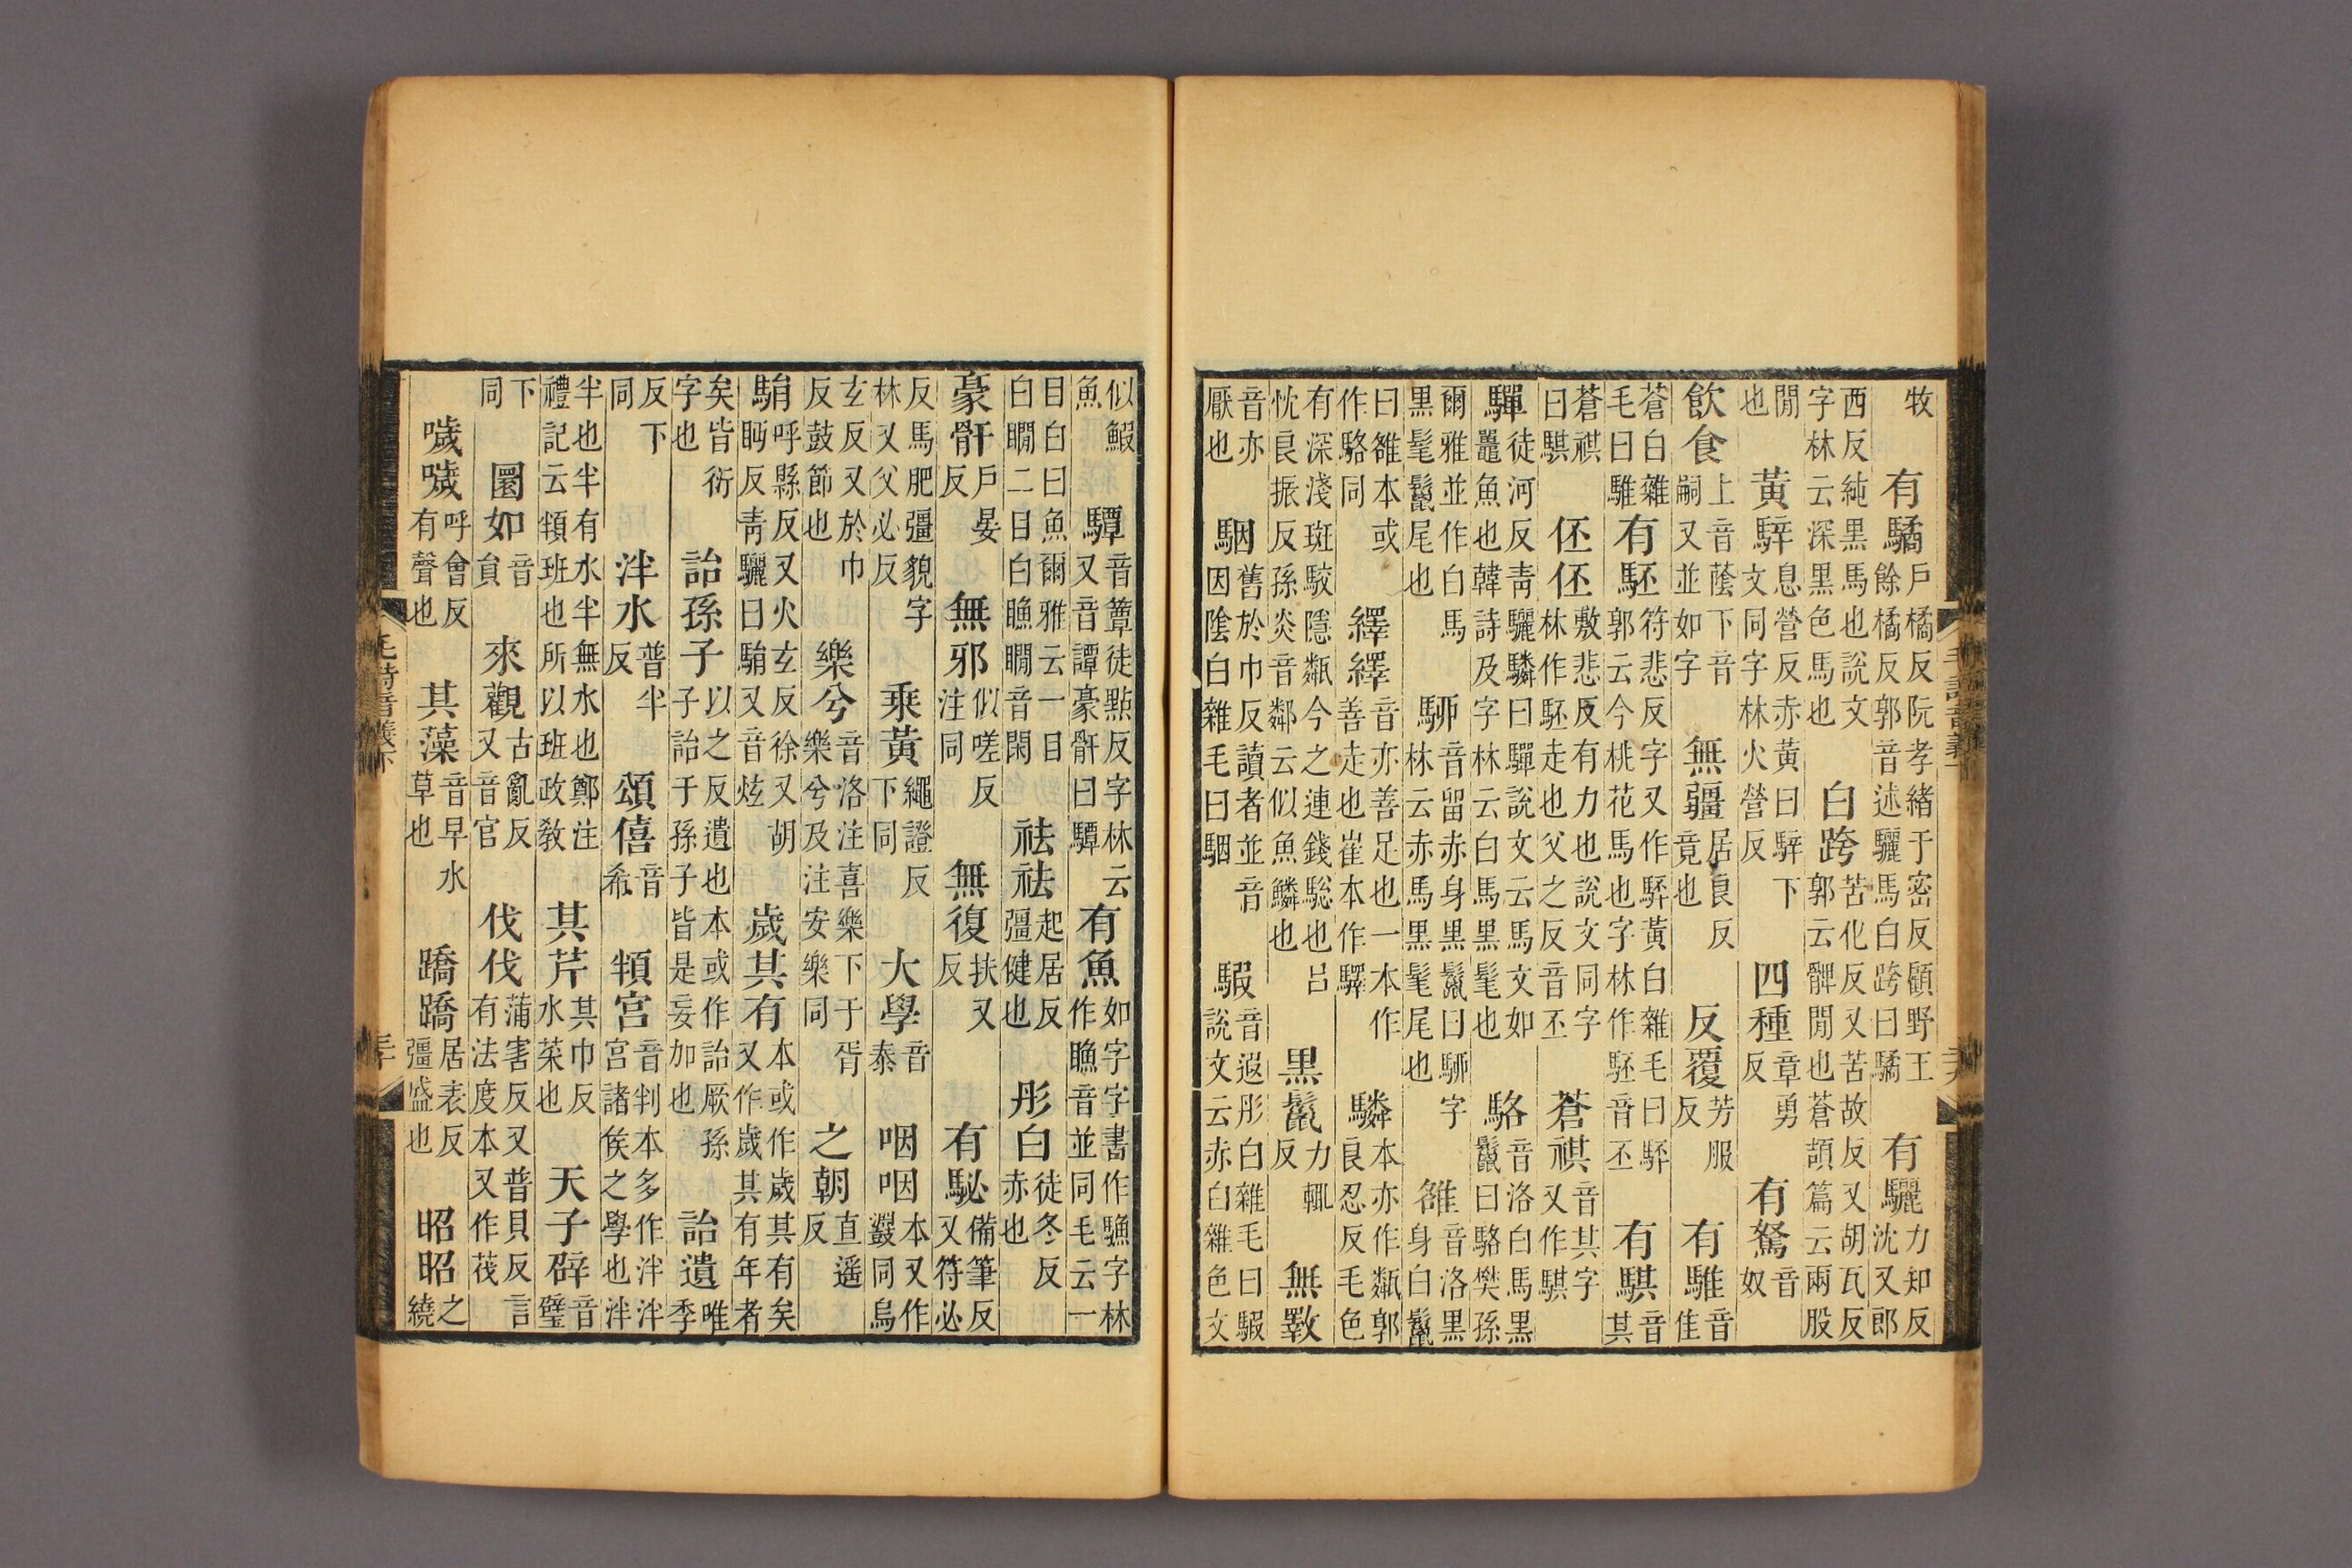 毛詩音義下
二十九
牧有驈戶橘反阮孝緒于密反顧野王餘橘反郭音述驪馬白跨曰驈有驪力知反沈又郎
西反純黑馬也說文字林云深黑色馬也白跨苦化反又苦故反又胡瓦反郭云髀閒也蒼頡篇云兩股
閒也黃騂息營反赤黃曰騂下文同字林火營反四種章勇反有駑音奴
飲食上音蔭下音嗣又並如字無疆居良反竟也反覆芳服反有騅音隹
蒼白雜毛曰騅有駓符悲反字又作駓黃白雜毛曰駓郭云今桃花馬也字林作駓音丕有騏音其
蒼祺曰騏伾伾敷悲反有力也說文同字林作駓走也父之反音丕蒼祺音其字又作騏
驒徒河反靑驪驎曰驒說文云馬文如鼉魚也韓詩及字林云白馬黑髦也駱音洛白馬黑鬛曰駱樊孫
爾雅並作白馬黑髦鬛尾也駵音留赤身黑鬛曰駵字林云赤馬黑髦尾也雒音洛黑身白鬛
曰雒本或作駱同繹繹音亦善足也一本作善走也崔本作驛驎本亦作甐郭良忍反毛色
有深淺斑駮隱甐今之連錢驄也呂忱良振反孫炎音鄰云似魚鱗也黑鬛力輒反無斁
音亦厭也駰舊於巾反讀者並音因陰白雜毛曰駰騢音遐彤白雜毛曰騢說文云赤白雜色文
似鰕魚驔音簟徒點反字林云又音譚豪骭曰驔有魚如字字書作䲣字林作瞧音並同毛云一
目白曰魚爾雅云一目白瞷二目白瞧瞷音閑祛祛起居反彊健也彤白徒冬反赤也
豪骭戶晏反無邪似嗟反注同無復扶又反有駜備筆反又符必
反馬肥彊貌字林又父必反乘黃繩證反下同大學音泰咽咽本又作鼝同烏
玄反又於巾反鼓節也樂兮音洛注喜樂下于胥樂兮及注安樂同之朝直遙反
駽呼縣反又火玄反徐又胡眄反靑驪曰駽又音炫歲其有本或作歲其有矣又作歲其有年者
矣皆衍字也詒孫子以之反遺也本或作詒厥孫子詒于孫子皆是妄加也詒遺唯季
反下同泮水普半反頌僖音希頖宮音判本多作泮泮宮諸侯之學也泮
半也半有水半無水也鄭注禮記云頖班也所以班政敎其芹其巾反水菜也天子辟音璧
下同圜如音員來觀古亂反又音官伐伐蒲害反又普貝反言有法度本又作茷
噦噦呼會反有聲也其藻音早水草也蹻蹻居表反彊盛也昭昭之繞
毛詩音義下
三十